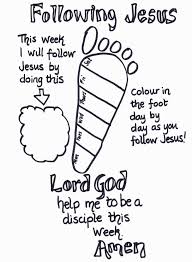 Following Jesus
This week
I will follow
Jesus by
doing this
Sat
Fri
Thurs
Wed
Tues
Mon
Sun
Colour in
the foot
day by
day as you
follow Jesus!
Lord God
help me to be a
disciple this
week.
Amen